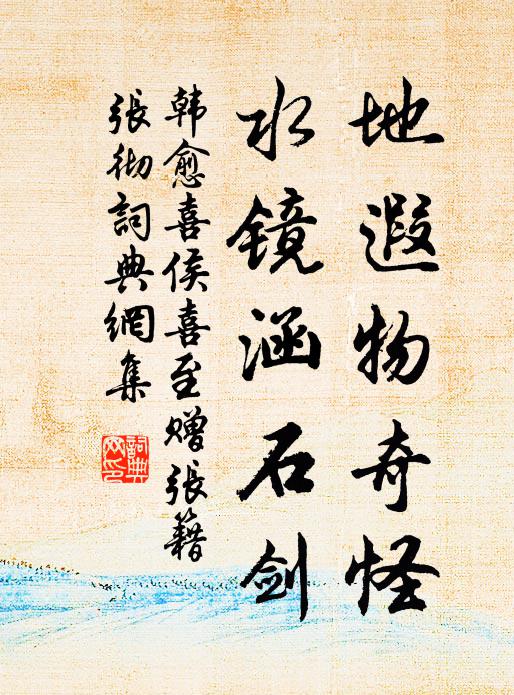 地遐物奇怪
水镜涵石剑
韩愈喜侯喜至赠张籍
張彻詞典網集
詞典
网印